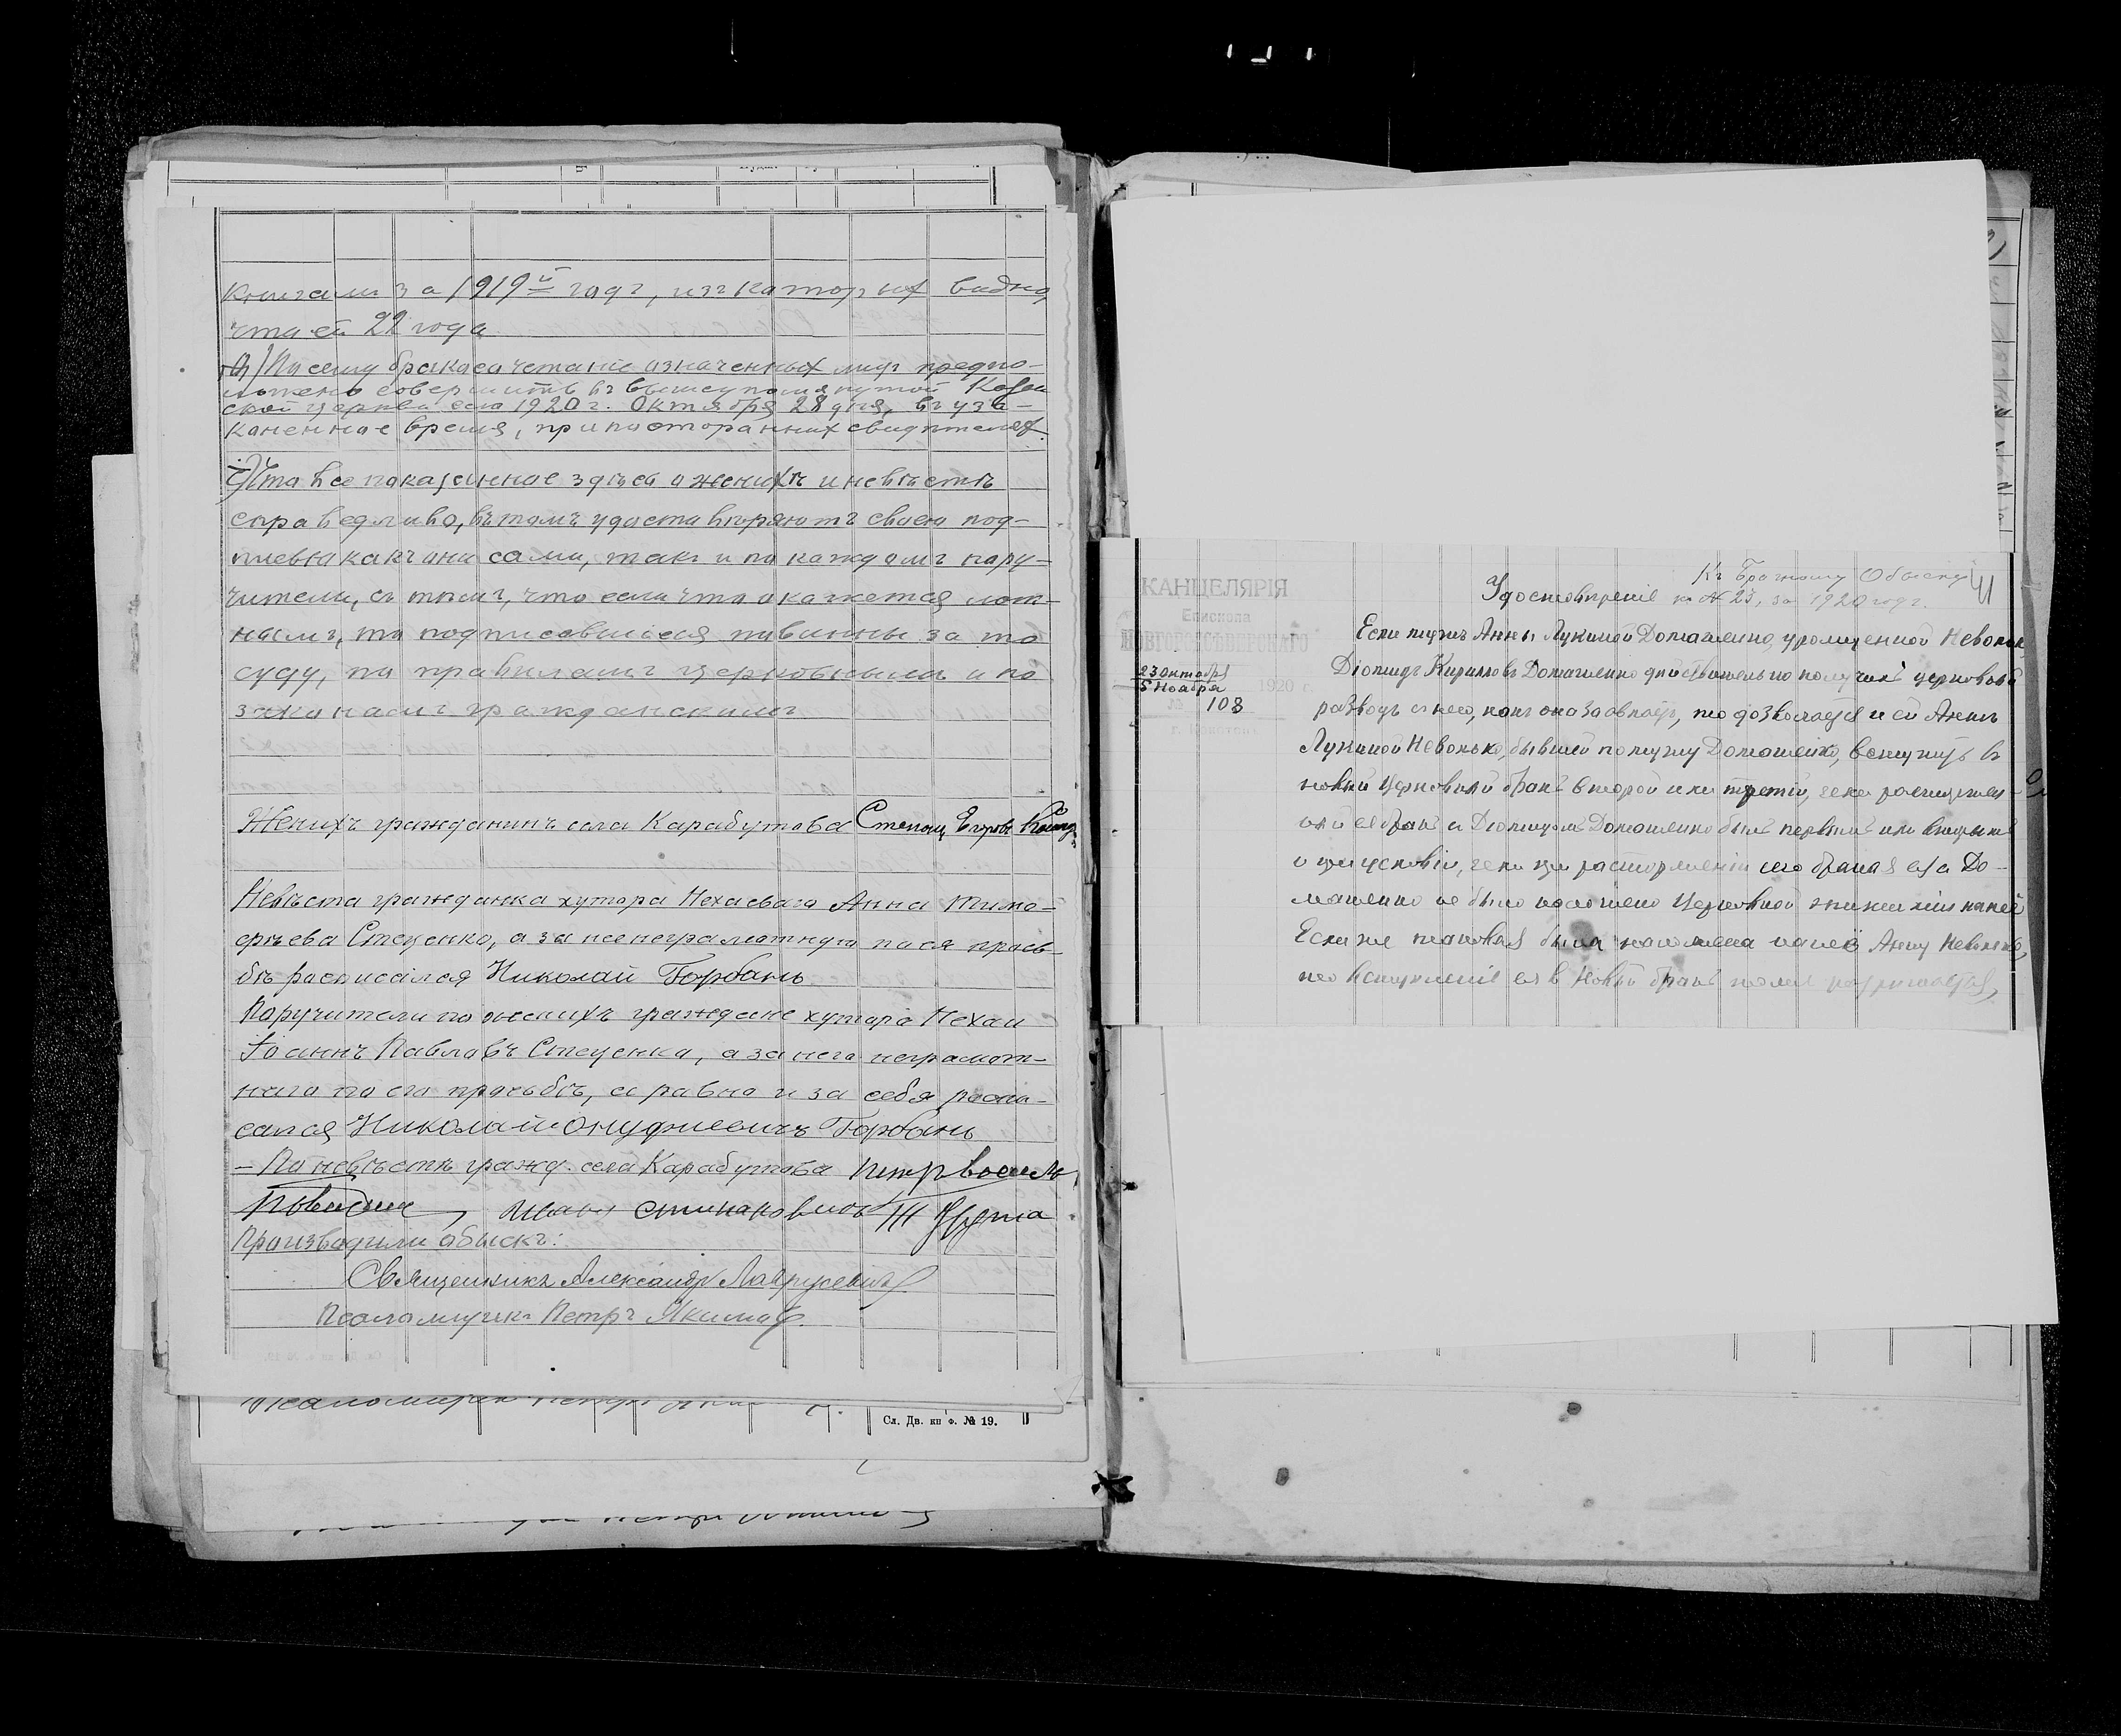 книгами за 1919й годъ, изъ которыхъ видно
что ей 22 года
6) По сему бракосочетанiе означенныхъ лицъ предпо-
ложено совершить въ вышеупомянутой Казан
ской церкви сего 1920 г. Октября 28 дня, въ уза-
коненное время, при постороннихъ свидѣтеляхъ.
7) Что все показанное здѣсь о женихѣ и невѣстѣ
справедливо, въ томъ удостовѣряютъ своею под-
писью какъ они сами, такъ и по каждомъ пору-
чители, съ тѣмъ, что если что окажется лож-
нымъ, то подписавшiеся повинны за то
суду, по правиламъ церковнымъ и по
законамъ гражданскимъ
Женихъ гражданинъ села Карабутова Степанъ Егоровъ
Невѣста гражданка хутора Нехаевого Анна Тимо-
фѣева Стеценко, а за нее неграмотную по ея прось-
бѣ расписался Николай Горбань
Поручители по женихѣ граждане хутора Нехаи
Iоаннъ Павловъ Стеценко, а за него неграмот-
наго по его просьбѣ, а равно и за себя распи-
сался Николай Онуфриевичъ Горбань
- По невѣстѣ гражд. села Карабутова Петръ
Иванъ
Производили обыскъ:
Священникъ Александръ
Псаломщикъ Петръ Якимов
Сл. Дв. кн ф. № 19.
Къ Брачному Обыску 41
Удостовѣренiе къ № 23, за 1920 годъ.
КАНЦЕЛЯРIЯ
Епископа
НОВГОРОДСѢВЕРСКАГО
23 Октября
5 Ноября 1920 г.
№ 108
г. Конотопъ
Если мужъ Анны Лукиной Домашенко, урожденной Невонько,
Дiомидъ Кирилловъ Домашенко дѣйствительно получилъ церковный
разводъ с нею, какъ она заявляетъ, то дозволяется и ей Аннѣ
Лукиной Невонько, бывшей по мужу Домашенко, вступить въ
новый церковный бракъ второй или третiй, если расторгнут-
ый ея бракъ с Дiомидомъ Домашенко былъ первымъ или вторымъ
и при условiи, если при расторженiи сего брака ея с До-
машенко не было наложено Церковной эпитимiи на неё
Если же таковая была наложена на неё Анну Невонько,
то вступленiе ея в новый бракъ не разрешается,